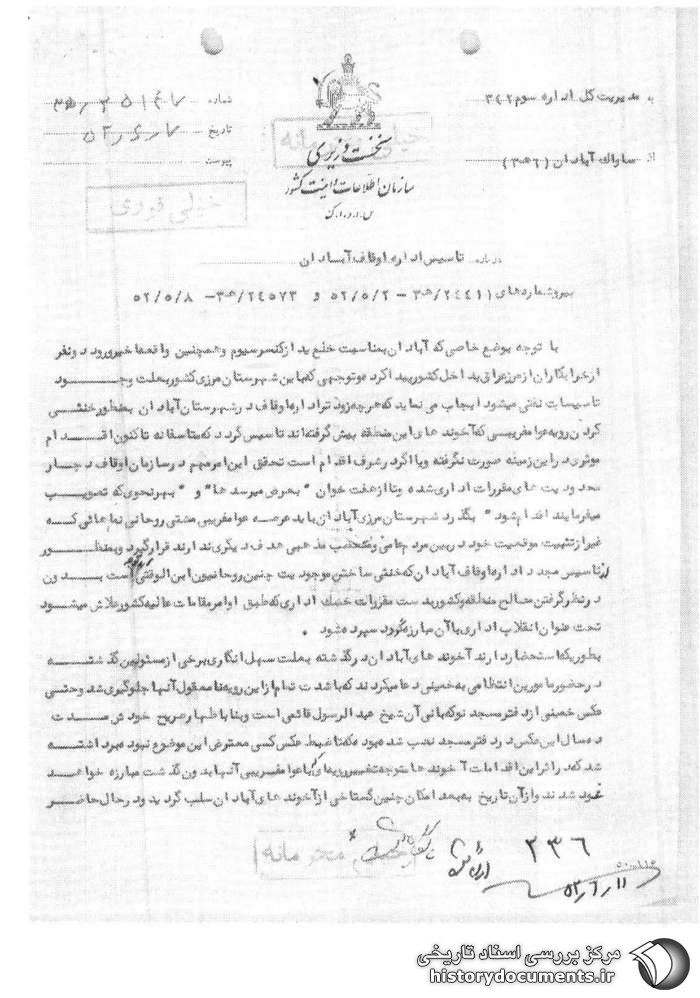 به مدیریت کل اداره سوم ۳۴۲
شماره
از ساواک آبادان (۶ه۳)
تاریخ
پیوست
خیلی محرمانه
نخست وزیری
سازمان اطلاعات و امنیت کشور
س.ا.و.ا.ک
خیلی فوری
درباره تاسیس اداره اوقاف آبادان
پیرو شماره‌های ۲۴۴۱۱/ه۳ - ۵۲/۵/۲ و ۲۴۵۷۳/ه۳ - ۵۲/۵/۸
با توجه بوضع خاصی که آبادان بمناسبت خلع ید از کنسرسیوم وهمچنین واقعه اخیر ورود دو نفر
از خرابکاران از مرز عراق بداخل کشور پیدا کرده و توجهی که باین شهرستان مرزی کشور بعلت وجود
تاسیسات نفتی میشود ایجاب می نماید که هرچه زودتر اداره اوقاف در شهرستان آبادان بمنظور خنثی
کردن رویه عوامفریبی که آخوند های این منطقه پیش گرفته‌اند تاسیس گردد که متاسفانه تاکنون اقدام
موثری در این زمینه صورت نگرفته ویا اگر در شرف اقدام است تحقق این امر مهم در سازمان اوقاف دچار
محدودیت های مقررات اداری شده وتا از هفت خوان "بعرض میرسد ها" و "بهر نحوی که تصویب
میفرمایند اقدام شود" بگذرد شهرستان مرزی آبادان باید عرصه عوامفریبی مشتی روحانی نماهائی که
غیر از تثبیت موقعیت خود در بین مردم عامی و متعصب مذهبی هدف دیگری ندارند قرار گیرد وبمنظور
از تاسیس مجدد اداره اوقاف آبادان که خنثی ساختن موجودیت چنین روحانیون ابن الوقتی است بدون
در نظر گرفتن مصالح منطقه و کشور بدست مقررات خشک اداری که طبق اوامر مقامات عالیه کشور تلاش میشود
تحت عنوان انقلاب اداری با آن مبارزه گردد سپرده شود .
بطوریکه استحضار دارند آخوند های آبادان در گذشته بعلت سهل انگاری برخی از مسئولین گذشته
در حضور مامورین انتظامی به خمینی دعا میکردند که با شدت تمام از این رویه نامعقول آنها جلوگیری شد وحتی
عکس خمینی از دفتر مسجد نو که بانی آن شیخ عبدالرسول قائمی است وبنا باظهار صریح خودش مدت
ده سال این عکس در دفتر مسجد نصب شده بود که تا ضبط عکس کسی معترض این موضوع نبود میرد اشته
شد که در اثر این اقدامات آخوند ها متوجه تغییر رویه‌ای که با عوامفریبی آنها بدون گذشت مبارزه خواهد
شد شدند و از آن تاریخ به بعد امکان چنین گستاخی از آخوند های آبادان سلب گردید ودر حال حاضر
خیلی محرمانه
۲۳۶
۵۲/۶/۱۱
مرکز بررسی اسناد تاریخی
historydocuments.ir